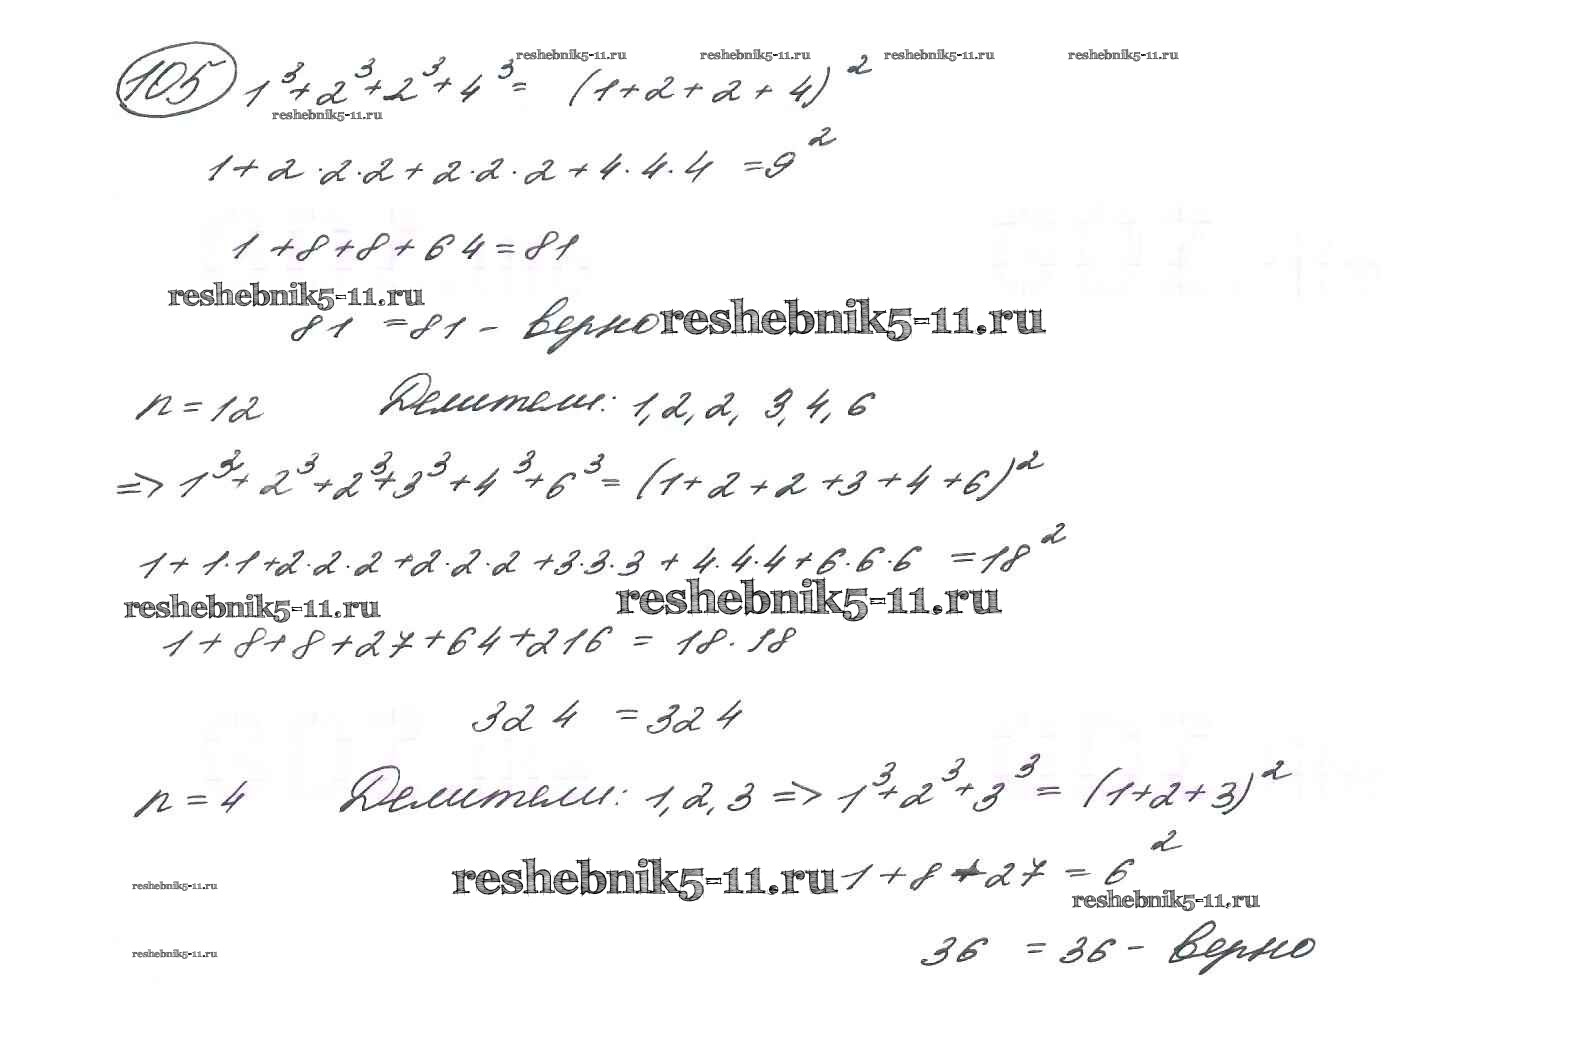 reshebnik5-11.ru reshebnik5-11.ru reshebnik5-11.ru reshebnik5-11.ru
105 1³+2³+2³+4³= (1+2+2+4)²
reshebnik5-11.ru
1+2·2·2+2·2·2+4·4·4 =9²
1+8+8+64=81
reshebnik5-11.ru
81 =81 - верно reshebnik5-11.ru
n=12 Делители: 1,2,2, 3,4,6
=> 1³+2³+2³+3³+4³+6³=(1+2+2+3+4+6)²
1+1·1+2·2·2+2·2·2+3·3·3+4·4·4+6·6·6 =18²
reshebnik5-11.ru reshebnik5-11.ru
1+8+8+27+64+216 = 18·18
324 =324
n=4 Делители: 1,2,3 => 1³+2³+3³= (1+2+3)²
reshebnik5-11.ru 1+8+27 =6²
reshebnik5-11.ru reshebnik5-11.ru
36 = 36 - верно
reshebnik5-11.ru